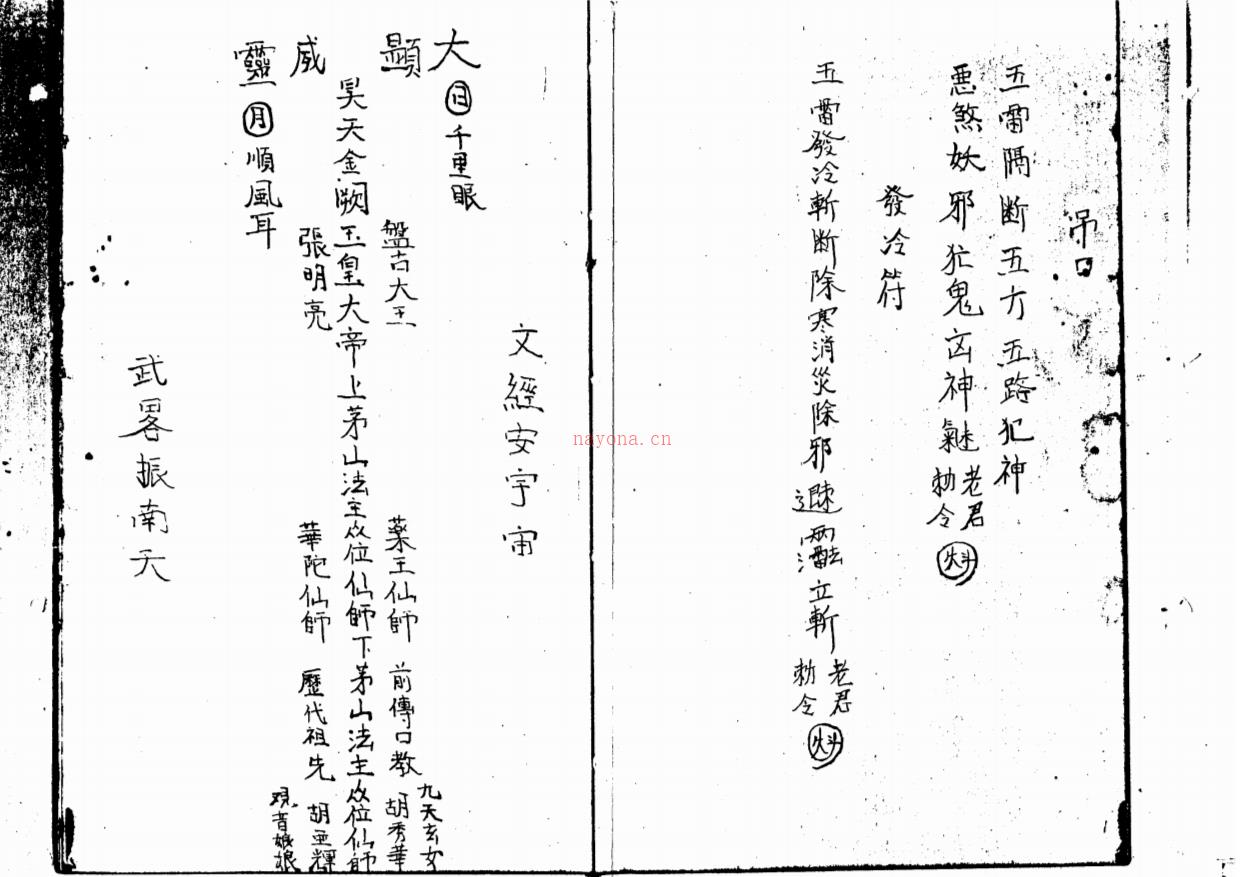 吊口
五雷隔断五方五路犯神
恶煞妖邪犯鬼凶神
老君
勅令
發冷符
五雷發冷斬断除寒消災除邪立斬
老君
勅令
文經安宇宙
大顯威靈
日千里眼
盤古大王
藥王仙師
前傳口教
胡秀華
九天玄女
昊天金阙玉皇大帝上茅山法主众位仙師下茅山法主众位仙師
張明亮
華陀仙師
歷代祖先
胡亜輝
观音娘娘
月順風耳
武畧振南天
nayona.cn